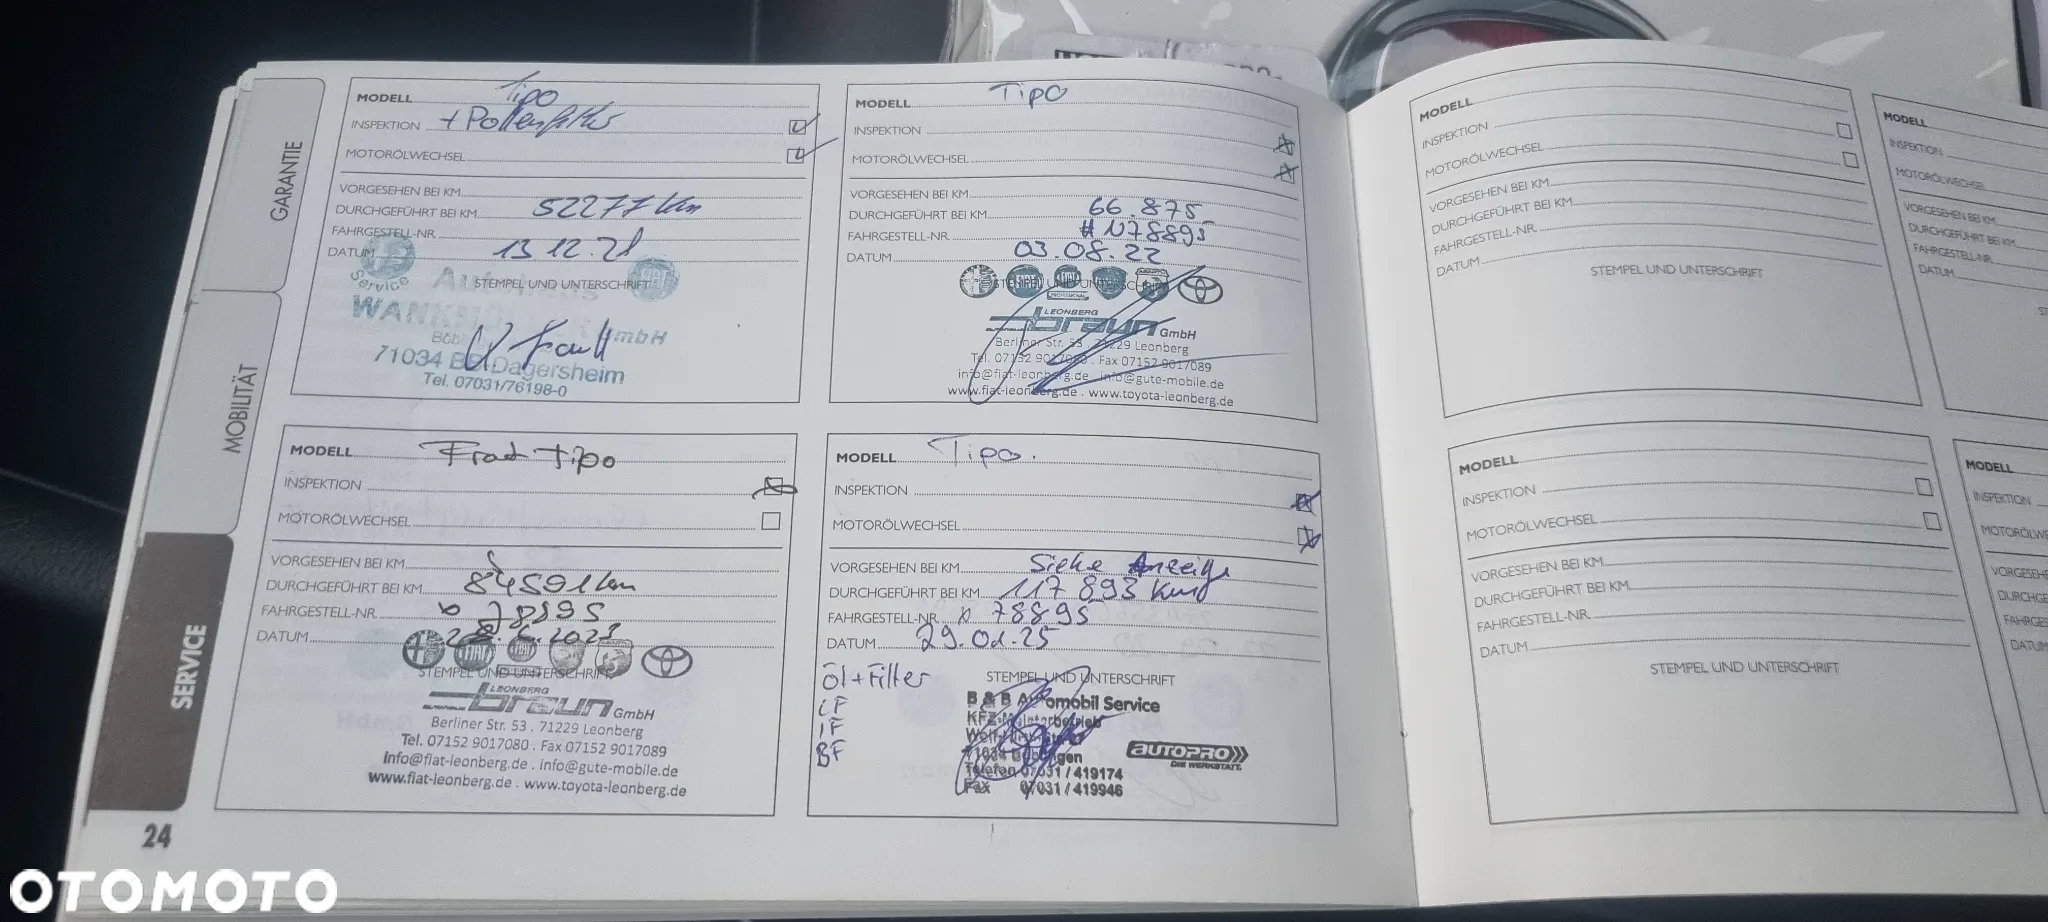 GARANTIE
MOBILITÄT
SERVICE
24
MODELL Tipo
INSPEKTION + Pollenfilter
MOTORÖLWECHSEL
VORGESEHEN BEI KM
DURCHGEFÜHRT BEI KM 52277 km
FAHRGESTELL-NR.
DATUM 13.12.21
STEMPEL UND UNTERSCHRIFT
Service
Autohaus
GmbH
71034 BB-Dagersheim
Tel. 07031/76198-0
MODELL Tipo
INSPEKTION
MOTORÖLWECHSEL
VORGESEHEN BEI KM
DURCHGEFÜHRT BEI KM 66.875
FAHRGESTELL-NR. #N78895
DATUM 03.08.22
STEMPEL UND UNTERSCHRIFT
LEONBERG
braun GmbH
Berliner Str. 53 . 71229 Leonberg
Tel. 07152 9017080 . Fax 07152 9017089
info@fiat-leonberg.de . info@gute-mobile.de
www.fiat-leonberg.de . www.toyota-leonberg.de
MODELL Fiat Tipo
INSPEKTION
MOTORÖLWECHSEL
VORGESEHEN BEI KM
DURCHGEFÜHRT BEI KM 84591 km
FAHRGESTELL-NR. 78895
DATUM
STEMPEL UND UNTERSCHRIFT
FIAT
LEONBERG
AUTOHAUS braun GmbH
Berliner Str. 53 . 71229 Leonberg
Tel. 07152 9017080 . Fax 07152 9017089
info@fiat-leonberg.de . info@gute-mobile.de
www.fiat-leonberg.de . www.toyota-leonberg.de
MODELL Tipo.
INSPEKTION
MOTORÖLWECHSEL
VORGESEHEN BEI KM Siehe Anzeige
DURCHGEFÜHRT BEI KM 117 893 km
FAHRGESTELL-NR. 78895
DATUM 29.01.25
Öl+Filter
LF
IF
BF
STEMPEL UND UNTERSCHRIFT
B & B Automobil Service
KFZ-Meisterbetrieb
71034 Böblingen
Telefon 07031 / 419174
Fax 07031 / 419946
AUTOPRO
DIE WERKSTATT.
MODELL
INSPEKTION
MOTORÖLWECHSEL
VORGESEHEN BEI KM
DURCHGEFÜHRT BEI KM
FAHRGESTELL-NR.
DATUM
STEMPEL UND UNTERSCHRIFT
MODELL
INSPEKTION
MOTORÖLWECHSEL
VORGESEHEN BEI KM
DURCHGEFÜHRT BEI KM
FAHRGESTELL-NR.
DATUM
MODELL
INSPEKTION
MOTORÖLWECHSEL
VORGESEHEN BEI KM
DURCHGEFÜHRT BEI KM
FAHRGESTELL-NR.
DATUM
STEMPEL UND UNTERSCHRIFT
MODELL
INSPEKTION
OTOMOTO